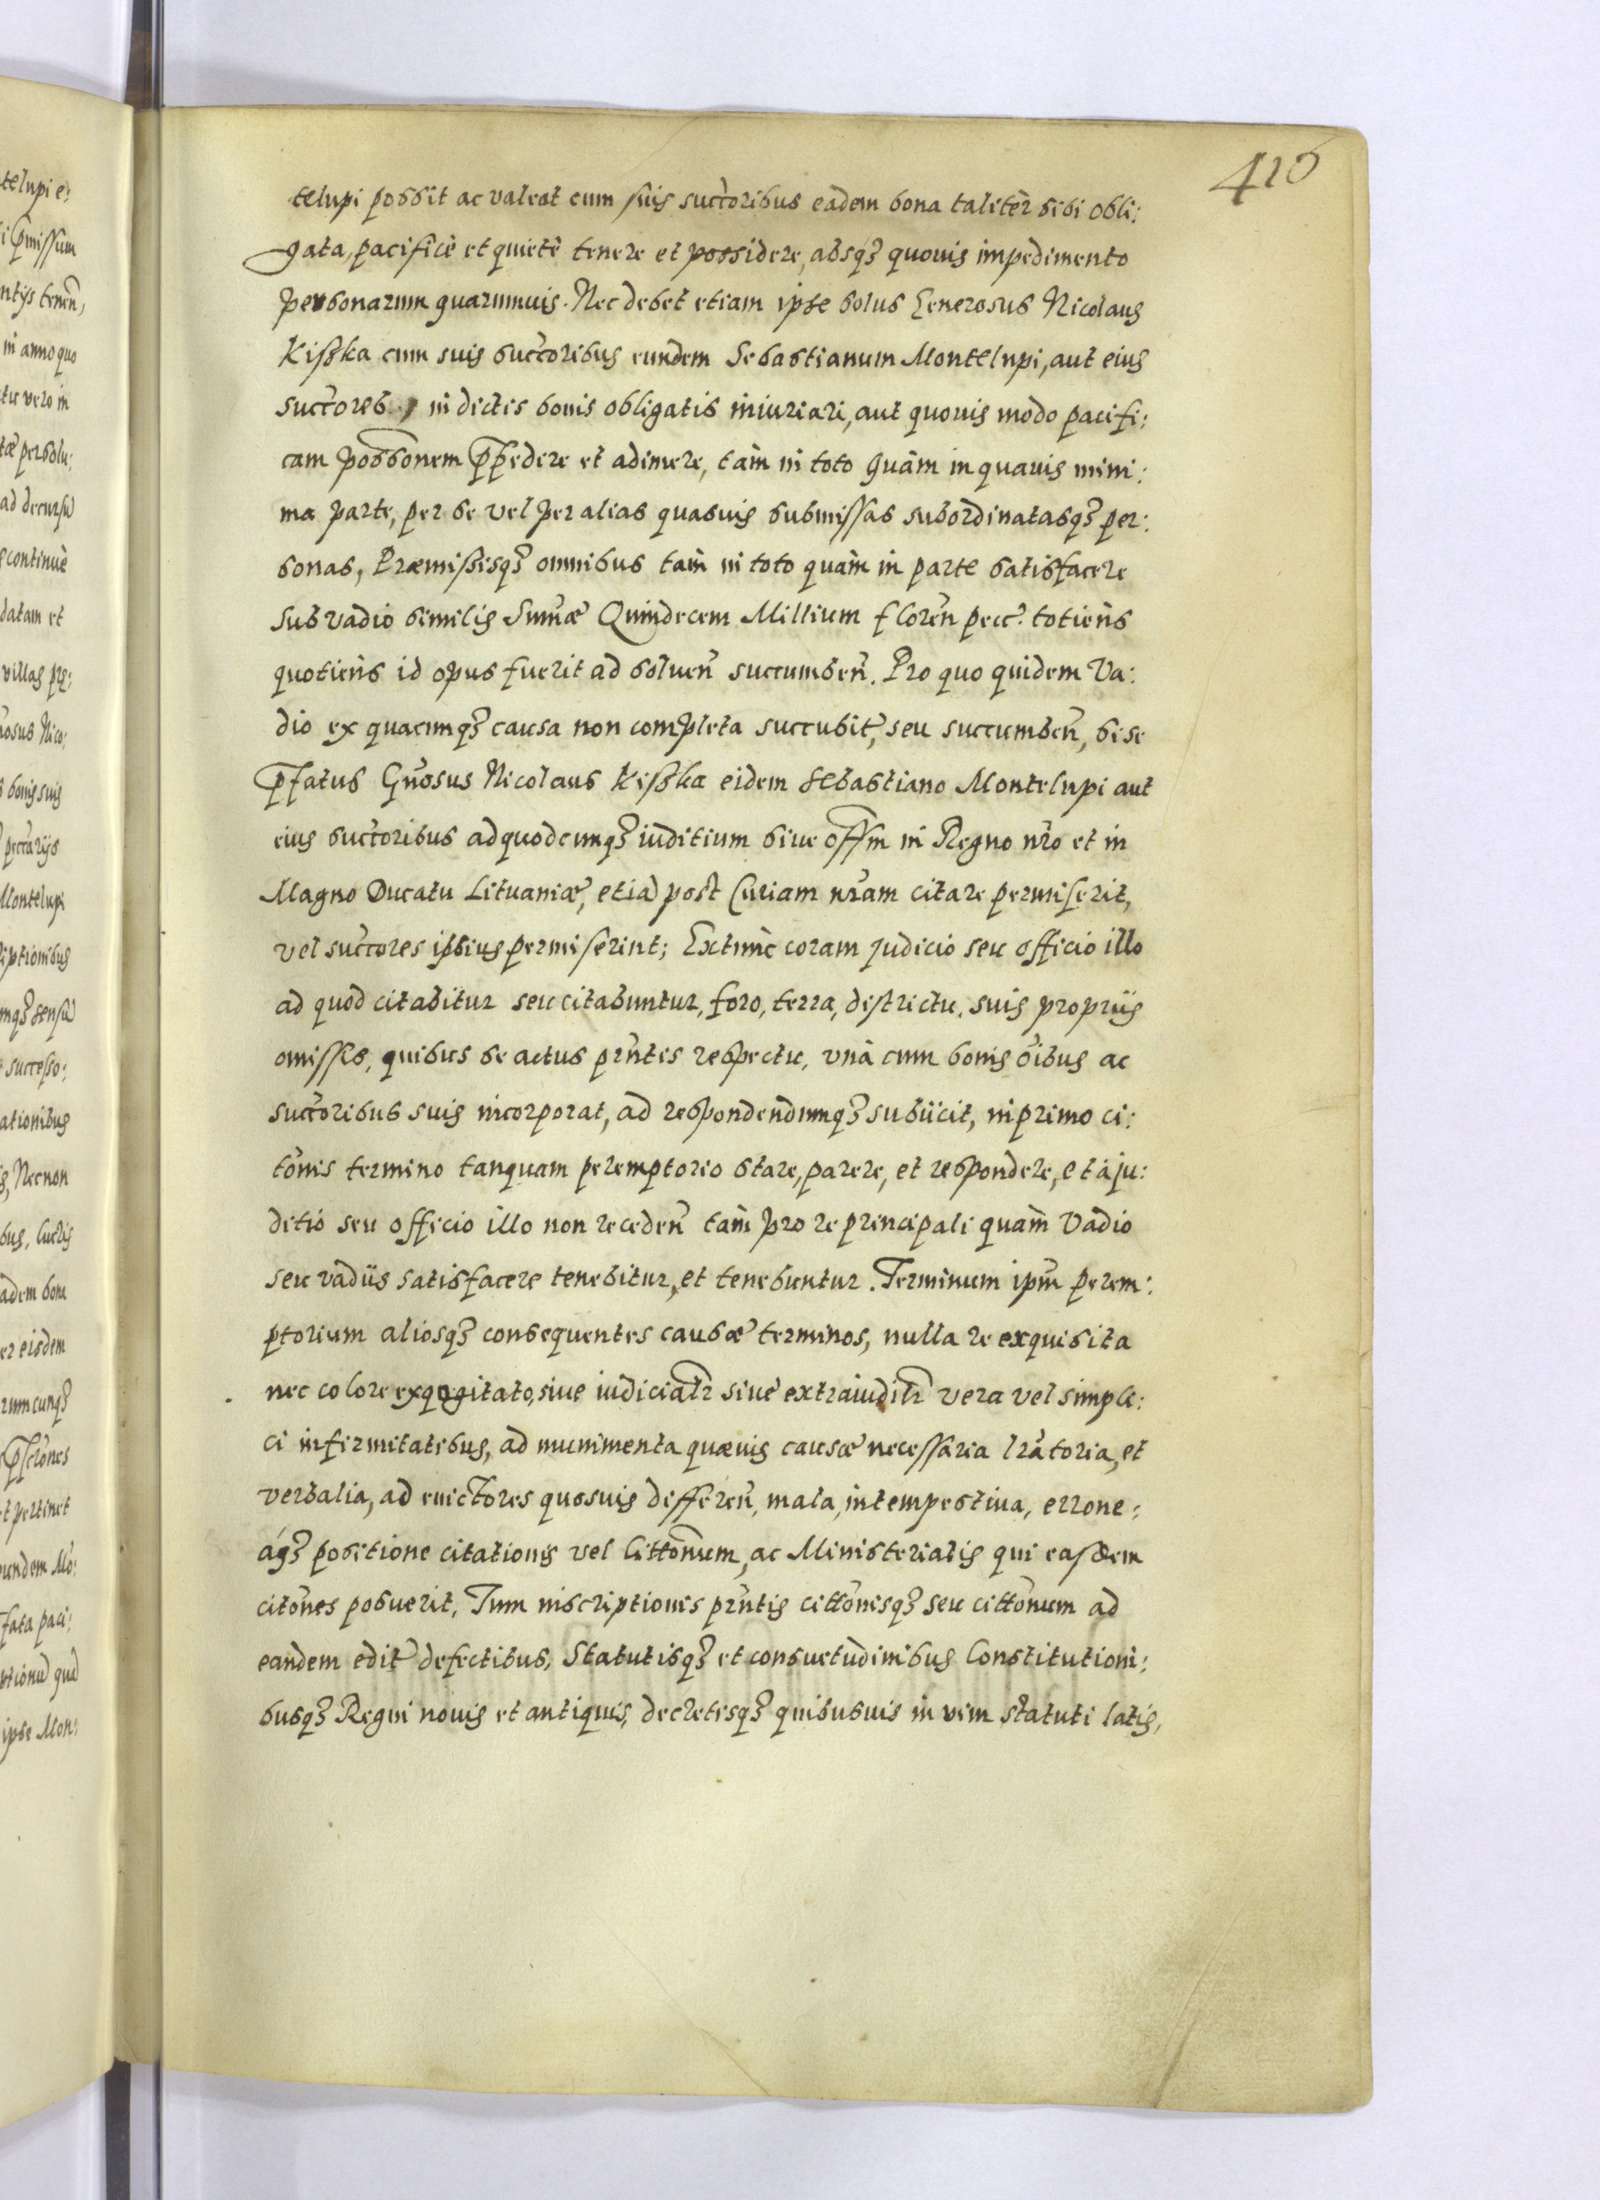 410
telupi possit ac valeat cum suis succoribus eadem bona taliter sibi obli:
gata, pacificè et quietè tenere et possidere, absq3 quouis impedimento
personarum quarumuis. Nec debet etiam ipse solus Generosus Nicolaus
Kiszka cum suis succoribus eundem Sebastianum Montelupi, aut eius
succores in dictis bonis obligatis iniuriari, aut quouis modo pacifi:
cam possonem ppedire et adimere, tàm in toto quàm in quauis mini:
ma parte, per se vel per alias quasuis submissas subordinatasq3 per:
sonas, Præmissisq3 omnibus tàm in toto quàm in parte satisfacere
sub vadio similis Summæ Quindecem Millium floren pecc. totiens
quotiens id opus fuerit ad soluen succumben. Pro quo quidem Va:
dio ex quacunq3 causa non completa succubit, seu succumben, si se
pfatus Gnosus Nicolaus Kiszka eidem Sebastiano Montelupi aut
eius succoribus ad quodcunq3 iuditium siue offm in Regno nro et in
Magno Ducatu Lituaniæ, etiã post Curiam nram citare permiserit,
vel succores ipsius permiserint; Extunc coram judicio seu officio illo
ad quod citabitur seu citabuntur, foro, terra, districtu, suis proprijs
omissis, quibus se actus prntis respectu, vnà cum bonis oibus ac
succoribus suis incorporat, ad respondendumq3 subijcit, in primo ci:
tonis termino tanquam peremptorio stare, parere, et respondere, et à ju:
ditio seu officio illo non receden tàm pro re principali quàm Vadio
seu vadijs satisfacere tenebitur, et tenebuntur. Terminum ipm perem:
ptorium aliosq3 consequentes causæ terminos, nulla re exquisita
nec colore exqogitato, siue iudicialr siue extraiudilr vera vel simpli:
ci infirmitatibus, ad munimenta quæuis causæ necessaria lratoria, et
verbalia, ad euictores quosuis differen, mala, intempestiua, errone:
aq3 positione citationis vel littonum, ac Ministerialis qui easdem
citones posuerit, Tum inscriptionis prntis cittonisq3 seu cittonum ad
eandem edit defectibus, Statutisq3 et consuetudinibus Constitutioni:
busq3 Regni nouis et antiquis, decretisq3 quibusuis in vim statuti latis,